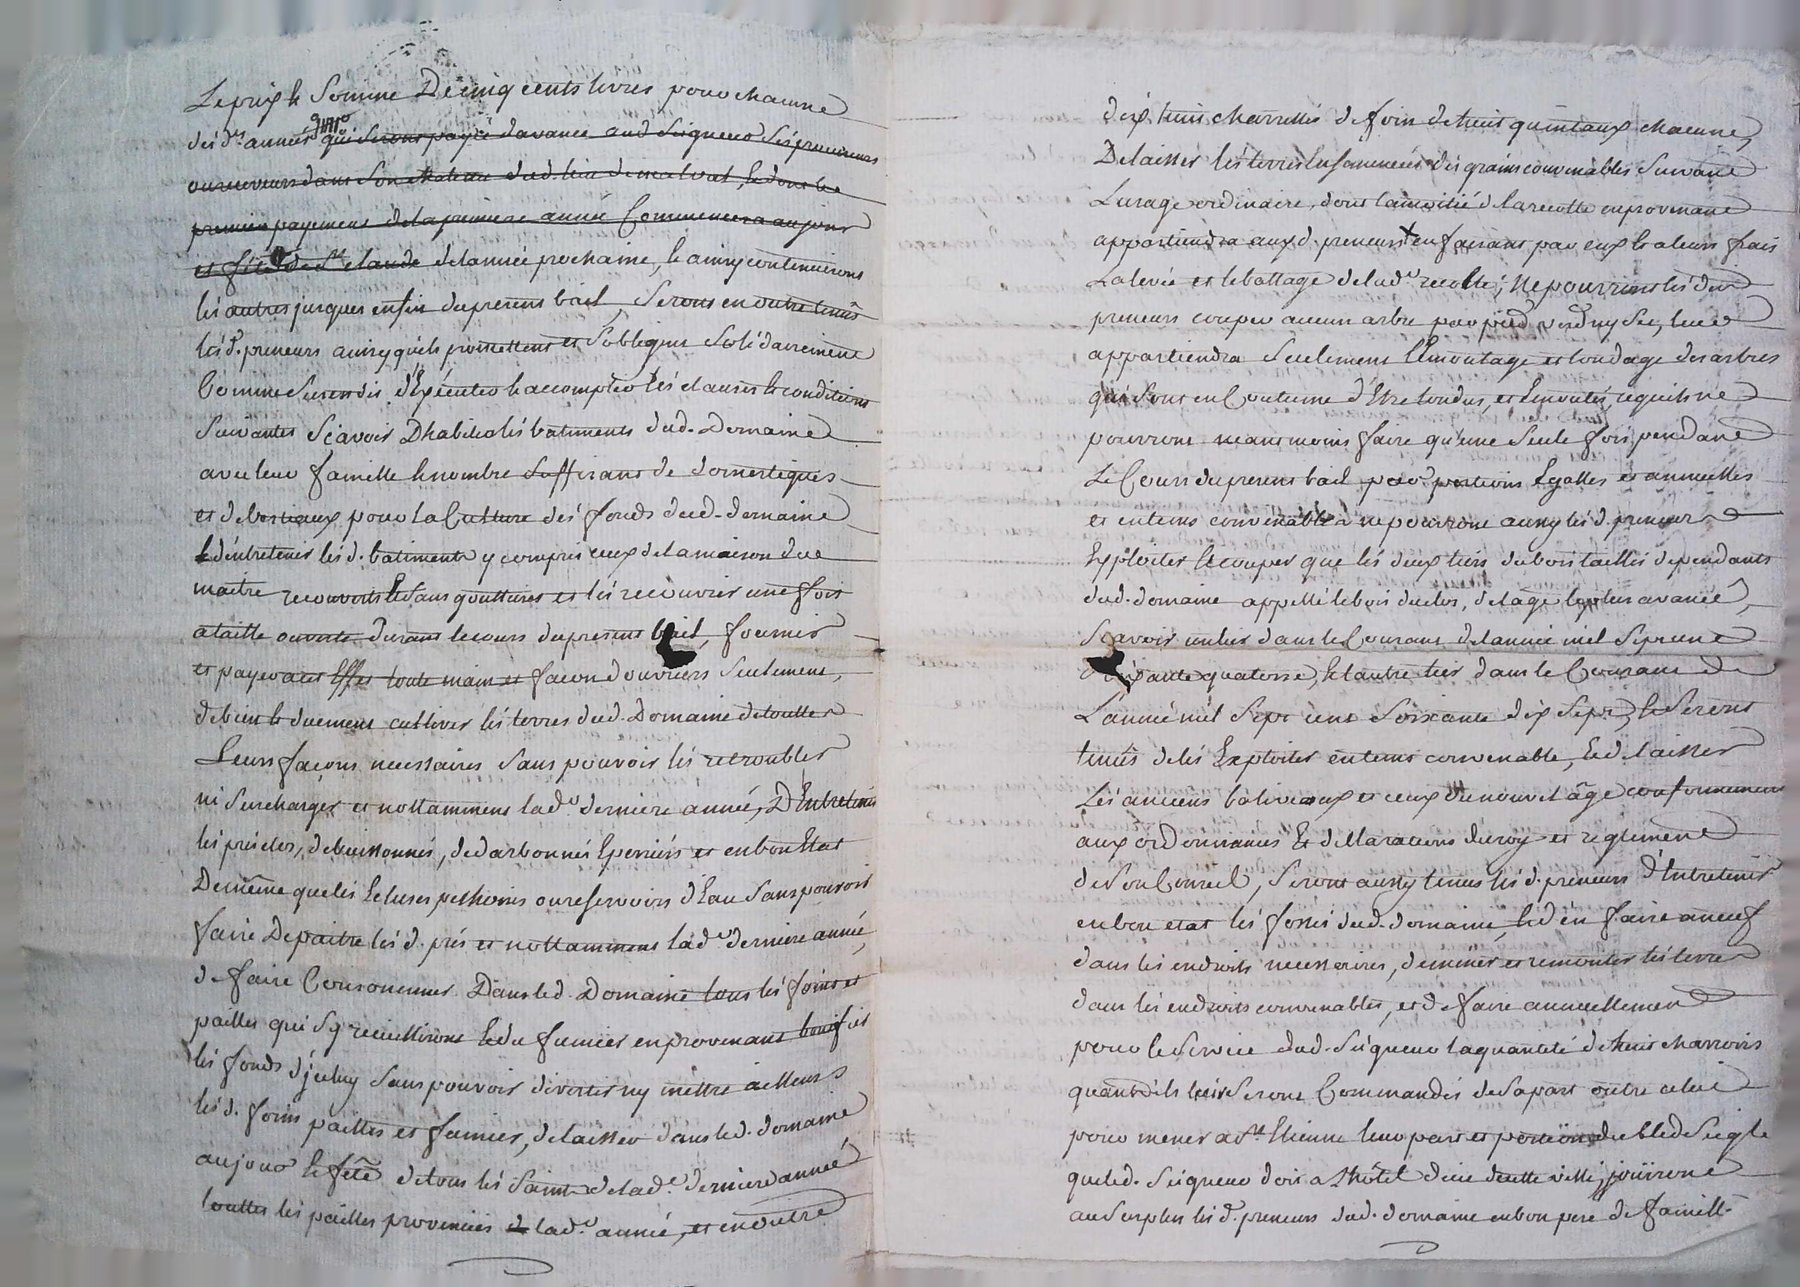 Le prix & Somme De cinq cents livres pour chacune
des dtes années qui seront payés d'avance aud Seigneur Ses procureurs
ou receveurs dans Son Chateau dud. lieu de malval, & dont le
premier payement de la premiere année Commencera au jour
et fête de St. claude de l'année prochaine, & ainsy continueront
les autres jusques en fin du present bail, Seront en outre tenus
les d. preneurs ainsy qu'ils promettent et S'obligent Solidairement
Comme Susendis d'Exécuter & accomplir les clauses & conditions
Suivantes Scavoir D'habiter les batiments dud. Domaine
avec leur famille & nombre Suffisant de domestiques
et de bestiaux pour la Culture des fonds dud. domaine
& d'entretenir les d. batiments y compris ceux de la maison du
maitre recouverts & sans gouttieres et les recouvrir une fois
a taille ouverte durant le cours du present bail, fournir
et payer a cet Effet toute main et facon d'ouvriers Seulement,
de bien & duement cultiver les terres dud. Domaine de toutes
Leurs façons necessaires Sans pouvoir les retroubler
ni Surcharger et nottamment lade derniere année, D'Entretenir
les prés clos, debuissonnés, dedarbonnés Epierrés et en bon Etat
De même que les Ecluses pescheries ou reservoirs d'Eau Sans pouvoir
faire Depaitre les d. prés et nottamment lade derniere année,
de faire Consommer Dans led. Domaine tous les foins et
pailles qui S'y recueilliront & du fumier en provenant bonifier
les fonds d'jceluy Sans pouvoir divertir ny mettre ailleurs
les d. foins pailles et fumier, de laisser dans led. domaine
au jour & fête de tous les Saints de lade derniere année
touttes les pailles provenües de lade année, et en outre
dix huit charrettés de foin de huit quintaux chacune,
De laisser les terres Ensemencées des grains convenables Suivant
L'usage ordinaire, dont la moitié de la recolte en provenant
appartiendra aux d. preneurs en faisant par eux & a leurs frais
La levée et le battage de lade recolte; Ne pourront les dits
preneurs couper aucun arbre par pied verd ny Sec, leur
appartiendra Seulement l'Emontage et tondage des arbres
qui Sont en Coutume d'Etre tondus, et Emontés, ce qu'ils ne
pourront neantmoins faire qu'une Seule fois pendant
Le Cours du present bail par portions Egalles et annuelles
et en tems convenable, ne pourront aussy les d. preneurs
Exploiter & couper que les deux tiers du bois taillis dependants
dud. domaine appellé le bois du clos, de l'âge le plus avancé,
Scavoir un tier dans le Courant de l'année mil Sept cent
Soixante quatorze, & l'autre tier dans le Courant de
L'année mil Sept cent Soixante dix Sept, & Seront
tenus de les Exploiter en tems convenable, & de laisser
Les anciens baliveaux et ceux du nouvel âge conformement
aux ordonnances Et declarations du roy et reglement
de Son Conseil, Seront aussy tenus les d. preneurs d'Entretenir
en bon etat les fossés dud. domaine, & d'en faire a neuf
dans les endroits necessaires, de miner et remonter les terres
dans les endroits convenables, et de faire annuellement
pour le Service dud. Seigneur la quantité de huit charrois
quand ils leur Seront Commandés de sa part outre celui
pour mener a St. Etienne leur part et portion du bled Seigle
que led. Seigneur doit a l'hôtel dieu de cette ville, jouiront
au Surplus les d. preneurs dud. domaine en bon pere de famille